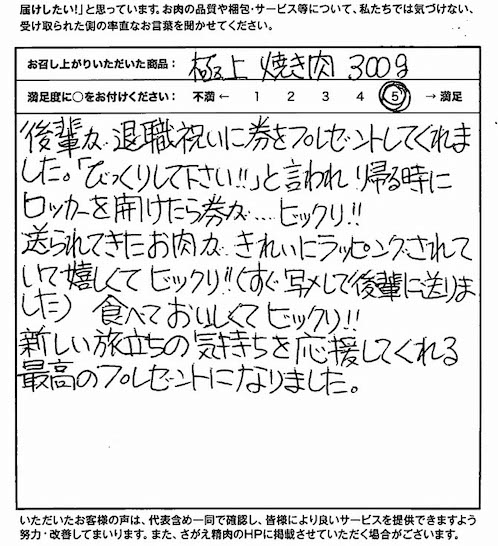 届けしたい！」と思っています。お肉の品質や梱包・サービス等について、私たちでは気づけない、
受け取られた側の率直なお言葉を聞かせてください。
お召し上がりいただいた商品： 極上 焼き肉 300g
満足度に○をお付けください： 不満 ← 1 2 3 4 5 → 満足
後輩が退職祝いに券をプレゼントしてくれま
した。「びっくりして下さい!!」と言われ 帰る時に
ロッカーを開けたら券が…ビックリ!!
送られてきたお肉が きれいにラッピングされて
いて嬉しくてビックリ!!(すぐ写メして後輩に送りま
した) 食べておいしくてビックリ!!
新しい旅立ちの気持ちを応援してくれる
最高のプレゼントになりました。
いただいたお客様の声は、代表含め一同で確認し、皆様により良いサービスを提供できますよう
努力・改善してまいります。また、さがえ精肉のHPに掲載させていただく場合がございます。